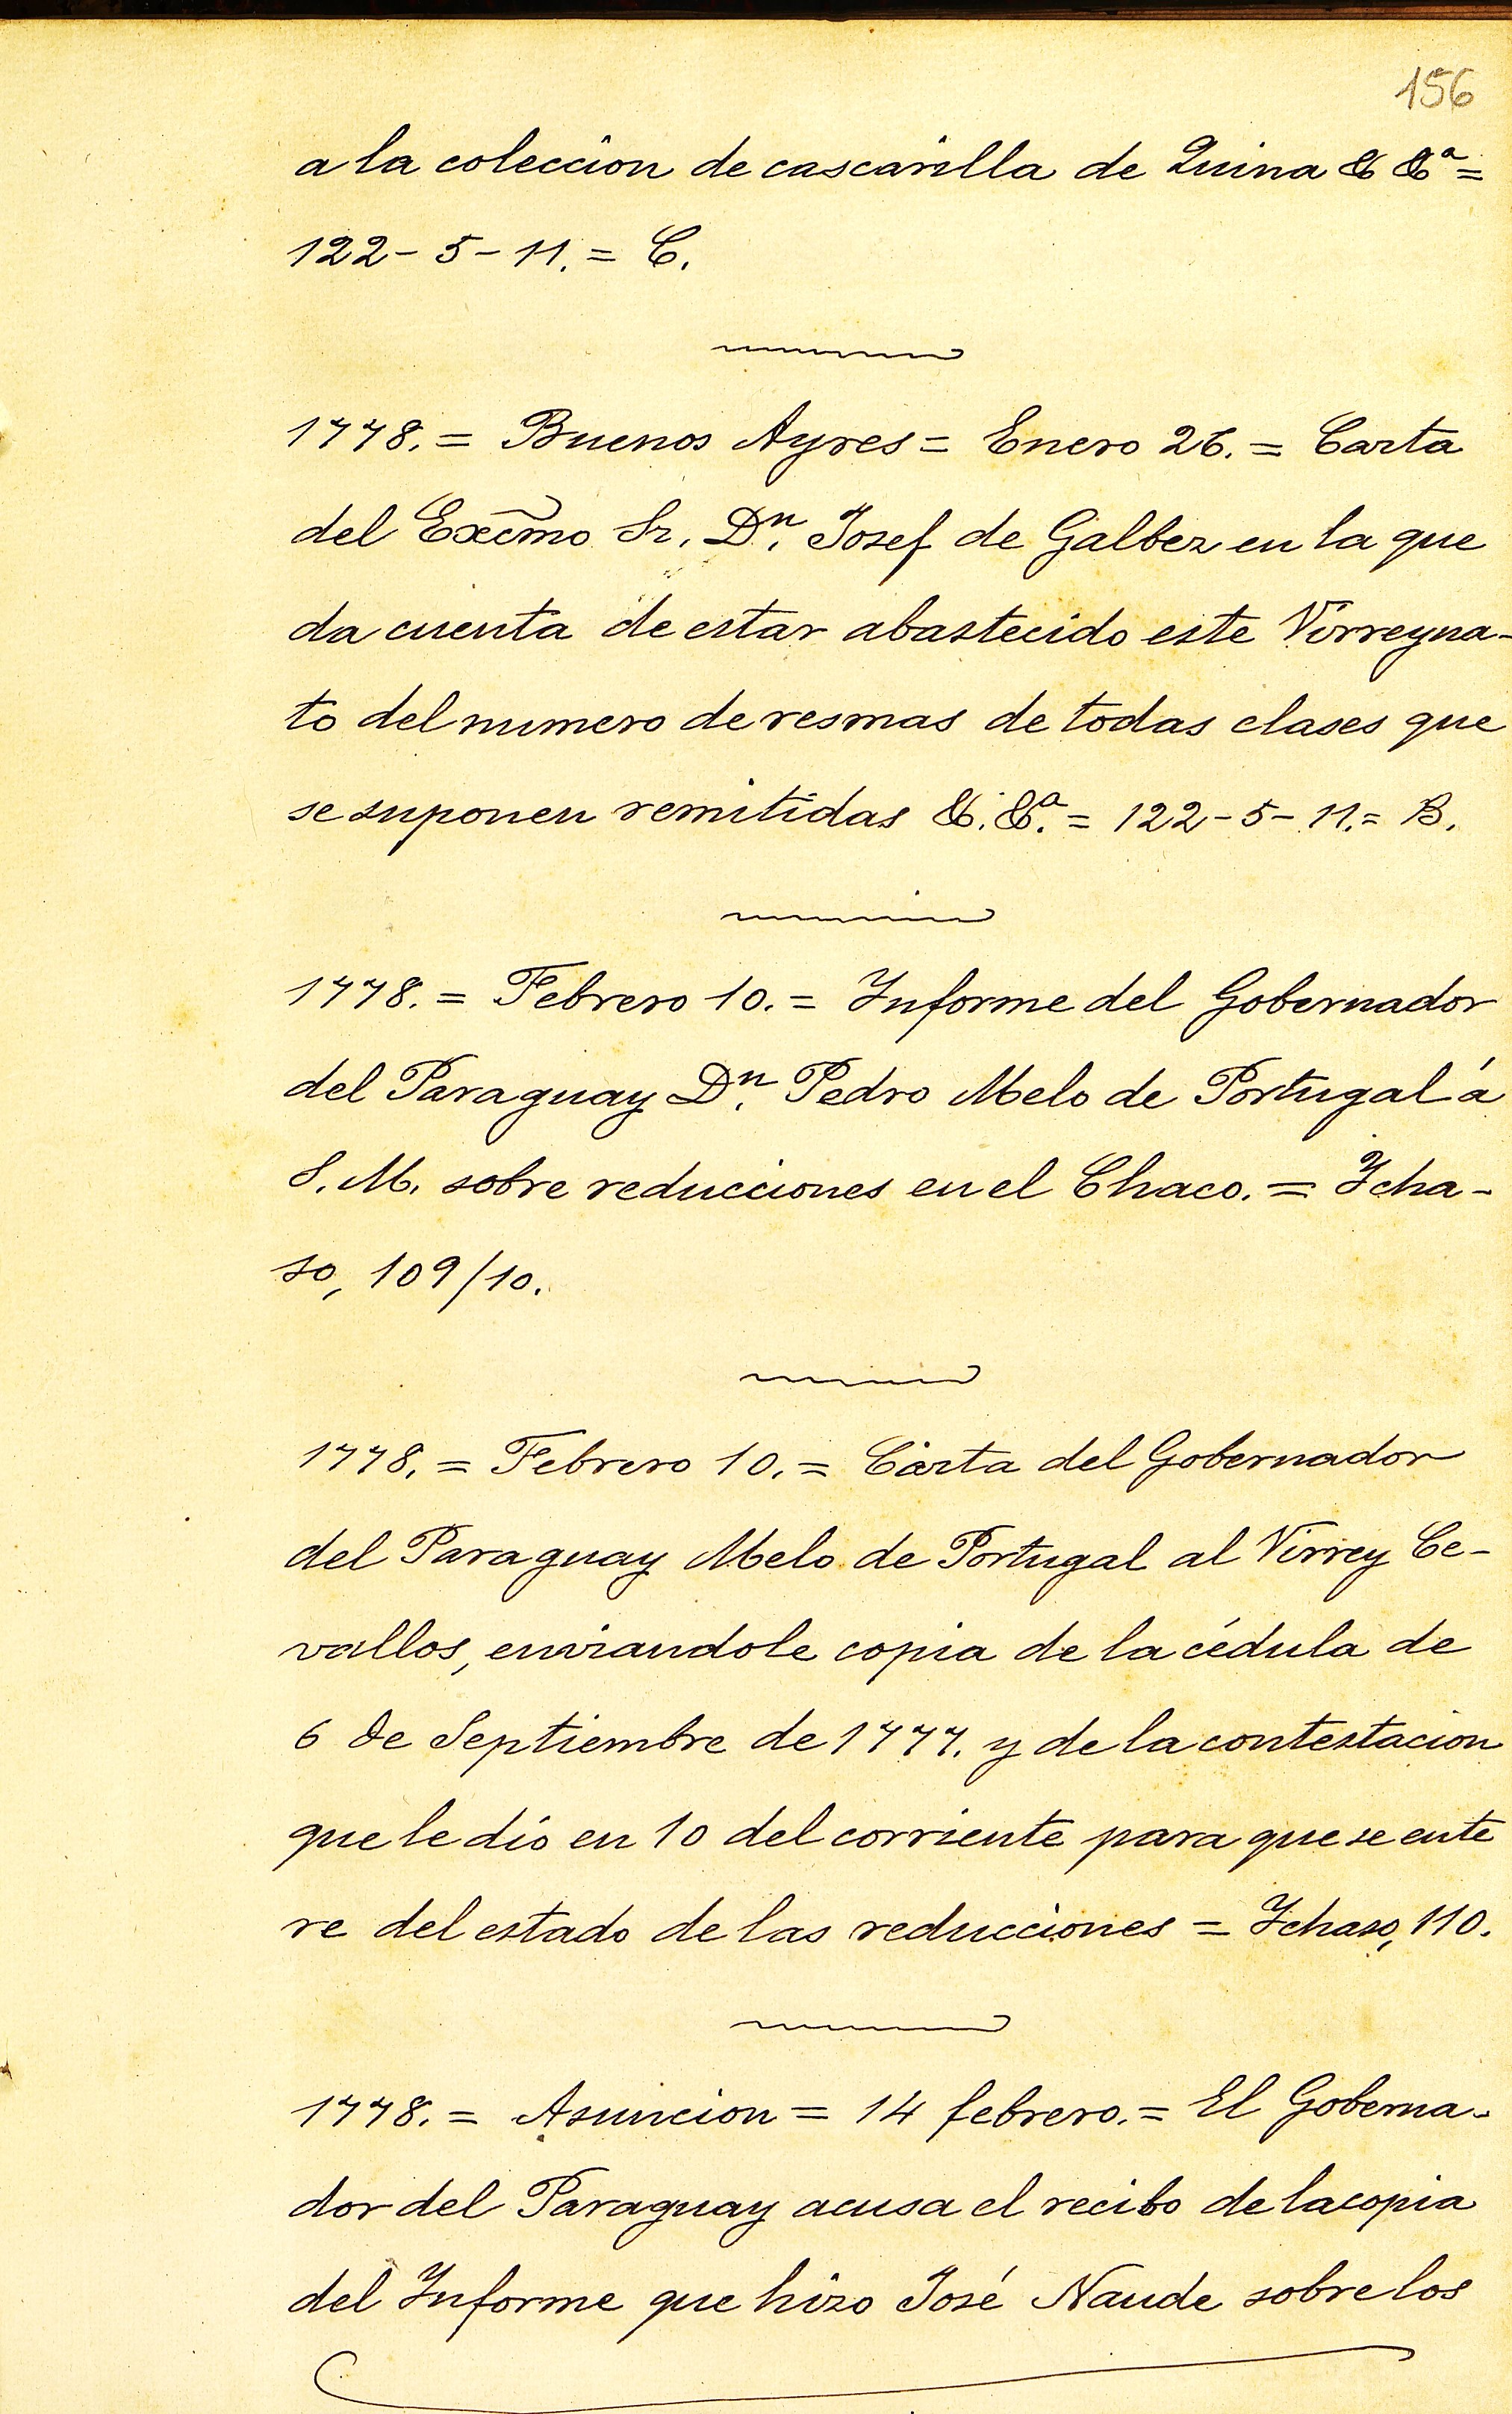 156
a la coleccion de cascarilla de Quina & &ª =
122 - 5 - 11. = C.
1778. = Buenos Ayres = Enero 26. = Carta
del Excmo Sr. Dn. Josef de Galbez en la que
da cuenta de estar abastecido este Virreyna-
to del numero de resmas de todas clases que
se suponen remitidas &. &ª. = 122 - 5 - 11. = B.
1778. = Febrero 10. = Informe del Gobernador
del Paraguay Dn. Pedro Melo de Portugal á
S. M. sobre reducciones en el Chaco. = Ycha-
so, 109/10.
1778. = Febrero 10. = Carta del Gobernador
del Paraguay Melo de Portugal al Virrey Ce-
vallos, enviandole copia de la cédula de
6 de Septiembre de 1777. y de la contestacion
que le dio en 10 del corriente para que se ente
re del estado de las reducciones = Ychaso, 110.
1778. = Asuncion = 14 febrero. = El Goberna-
dor del Paraguay acusa el recibo de la copia
del Informe que hizo José Naude sobre los